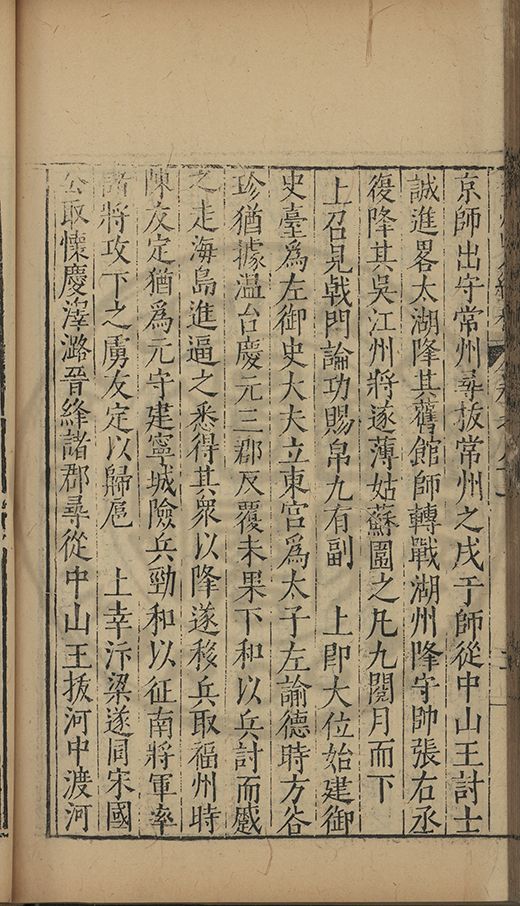 京師出守常州尋拔常州之戍于師從中山王討士
誠進畧太湖降其舊館師轉戰湖州降守帥張右丞
復降其吳江州將遂薄姑蘇圍之凡九閱月而下
上召見戟門論功賜帛九有副　上卽大位始建御
史臺爲左御史大夫立東宮爲太子左諭德時方谷
珍猶據溫台慶元三郡反覆未果下和以兵討而蹙
之走海島進逼之悉得其衆以降遂移兵取福州時
陳友定猶爲元守建寧城險兵勁和以征南將軍率
諸將攻下之虜友定以歸扈　上幸汴梁遂同宋國
公取懷慶澤潞晉絳諸郡尋從中山王拔河中渡河